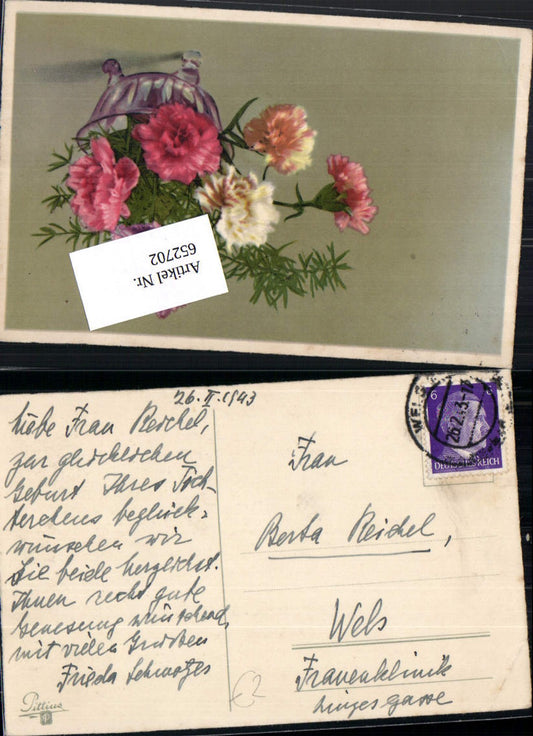 Artikel Nr.
652702
26. II. 1943
Liebe Frau Reichel,
zur glücklichen
Geburt Ihres Töch-
terchens beglück-
wünschen wir
Sie beide herzlichst.
Ihnen recht gute
Genesung wünschend,
mit vielen Grüssen
Frieda
Pittius
6 6
DEUTSCHES REICH
WELS
26.2.43-17
Frau
Berta Reichel,
Wels
Frauenklinik
Linzergasse
€2